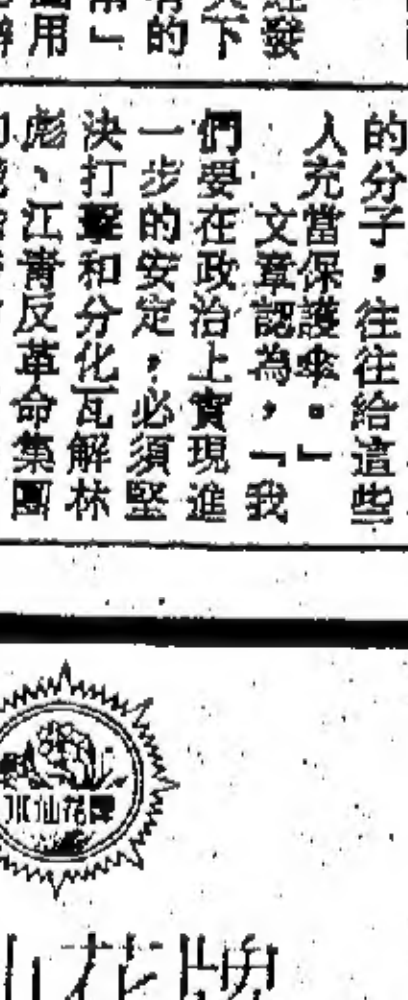 的分子，往往給這些
人充當保護傘。」
文章認為，「我
們要在政治上實現進
一步的安定，必須堅
決打擊和分化瓦解林
彪、江青反革命集團
水仙花牌
花牌